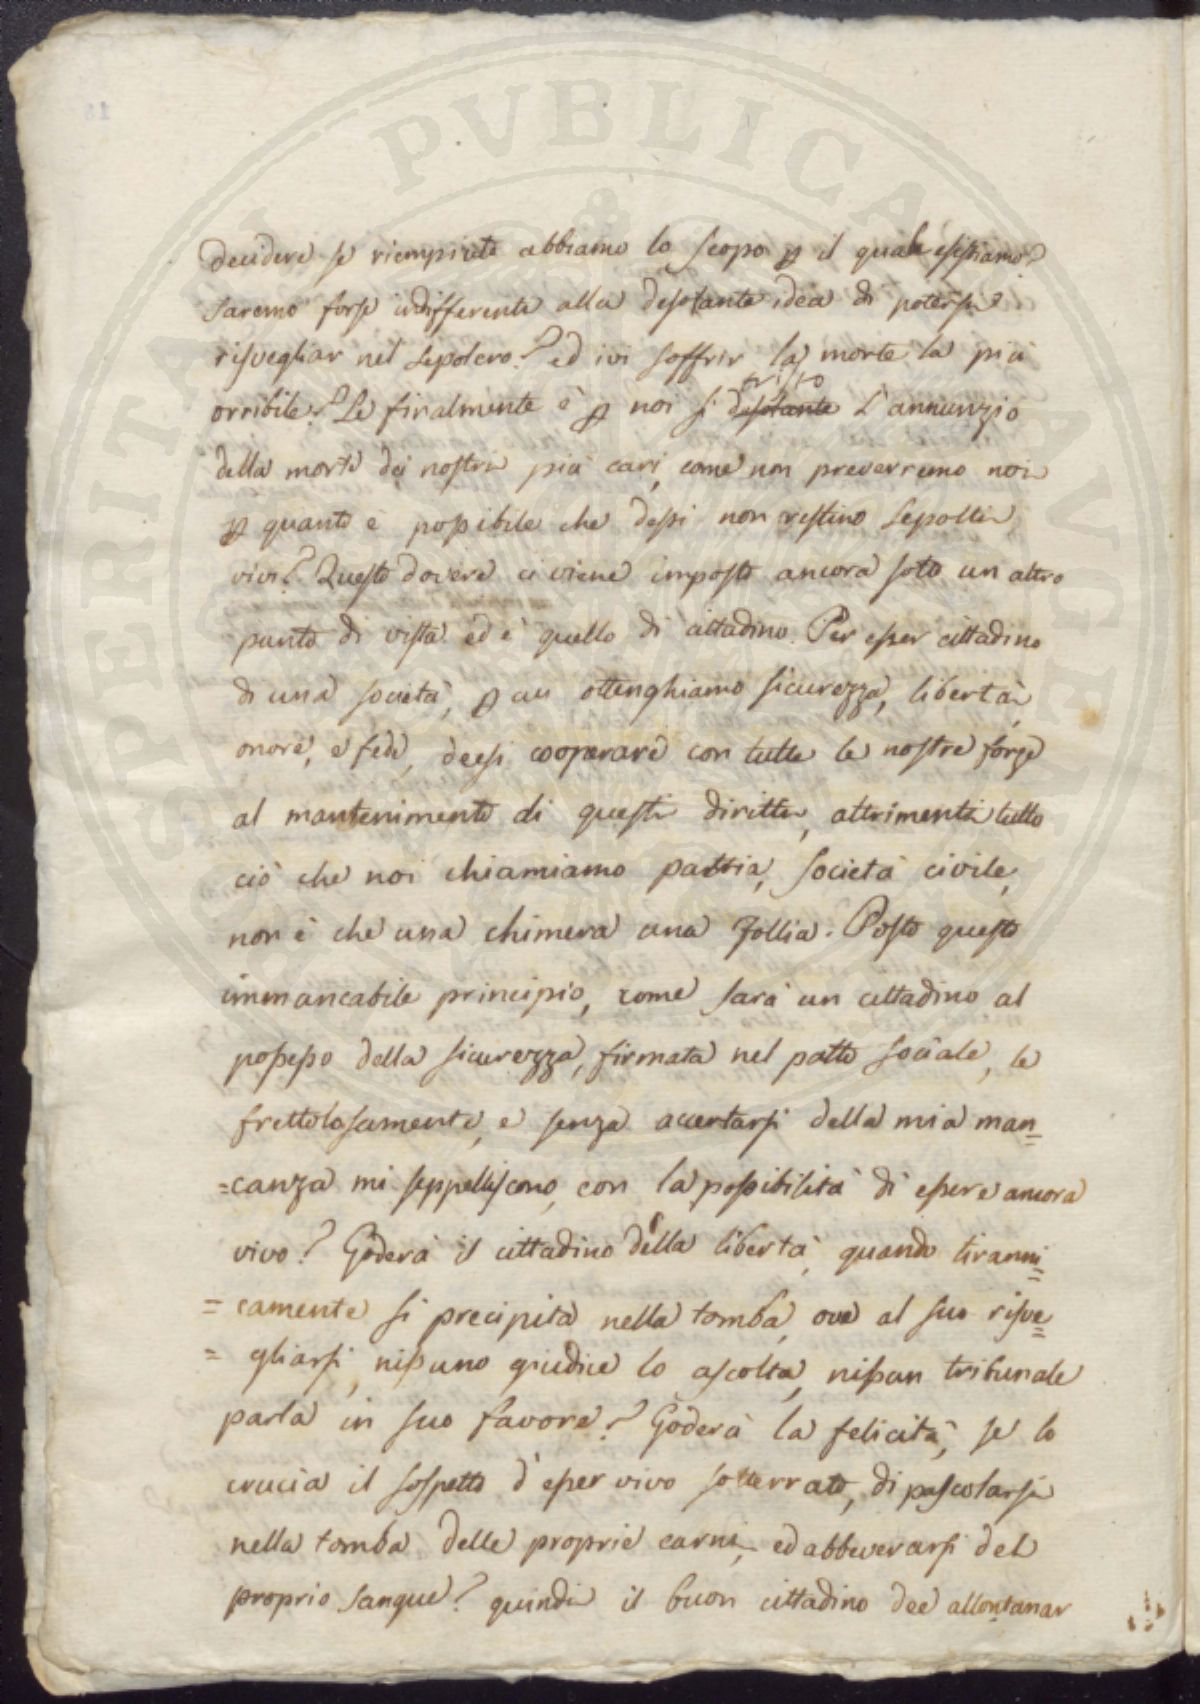 PVBLICAE
PROSPERITATI
AVGENDAE
decidere, se riempiuto abbiamo lo scopo p il quale esistiamo?
saremo forse indifferenti alla desolante idea di potersi
risvegliar nel sepolcro? ed ivi soffrir la morte la più
orribile? Se finalmente è p noi sì desolante tristo l'annunzio
della morte dei nostri più cari, come non preverremo noi
p quanto è possibile che dessi non restino sepolti
vivi? Questo dovere ci viene imposto ancora sotto un altro
punto di vista ed è quello di cittadino. Per esser cittadino
di una società, p cui ottenghiamo sicurezza, libertà,
onore, e fede, deesi cooperare con tutte le nostre forze
al mantenimento di questi diritti, altrimenti tutto
ciò che noi chiamiamo patria, società civile,
non è che una chimera una follia. Posto questo
immancabile principio, come sarà un cittadino al
possesso della sicurezza, firmata nel patto sociale, se
frettolosamente, e senza accertarsi della mia man=
=canza mi seppelliscono, con la possibilità di essere ancora
vivo? Goderà il cittadino della libertà, quando tiranni=
=camente si precipita nella tomba, ove al suo risve=
=gliarsi, nissuno giudice lo ascolta, nissun tribunale
parla in suo favore? Goderà la felicità, se lo
crucia il sospetto d'esser vivo sotterrato, di pascolarsi
nella tomba delle proprie carni, ed abbeverarsi del
proprio sangue? quindi il buon cittadino dee allontanar